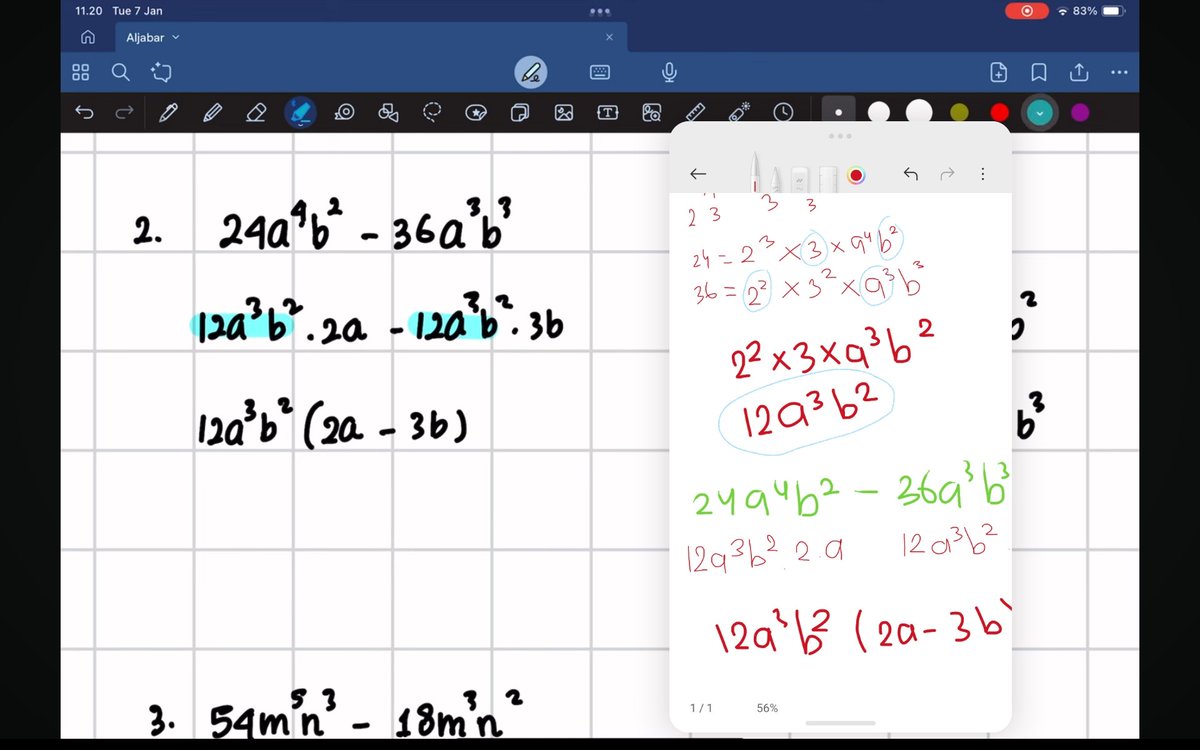 11.20 Tue 7 Jan
83%
Aljabar
2. 24a⁴b² - 36a³b³
12a³b² . 2a - 12a³b² . 3b
12a³b² (2a - 3b)
3. 54m⁵n³ - 18m³n²
b²
b³
2 3 3 3
24 = 2³ × 3 × a⁴b²
36 = 2² × 3² × a³b³
2² × 3 × a³b²
12a³b²
24a⁴b² - 36a³b³
12a³b² . 2 . a 12a³b²
12a³b² (2a - 3b
1/1 56%